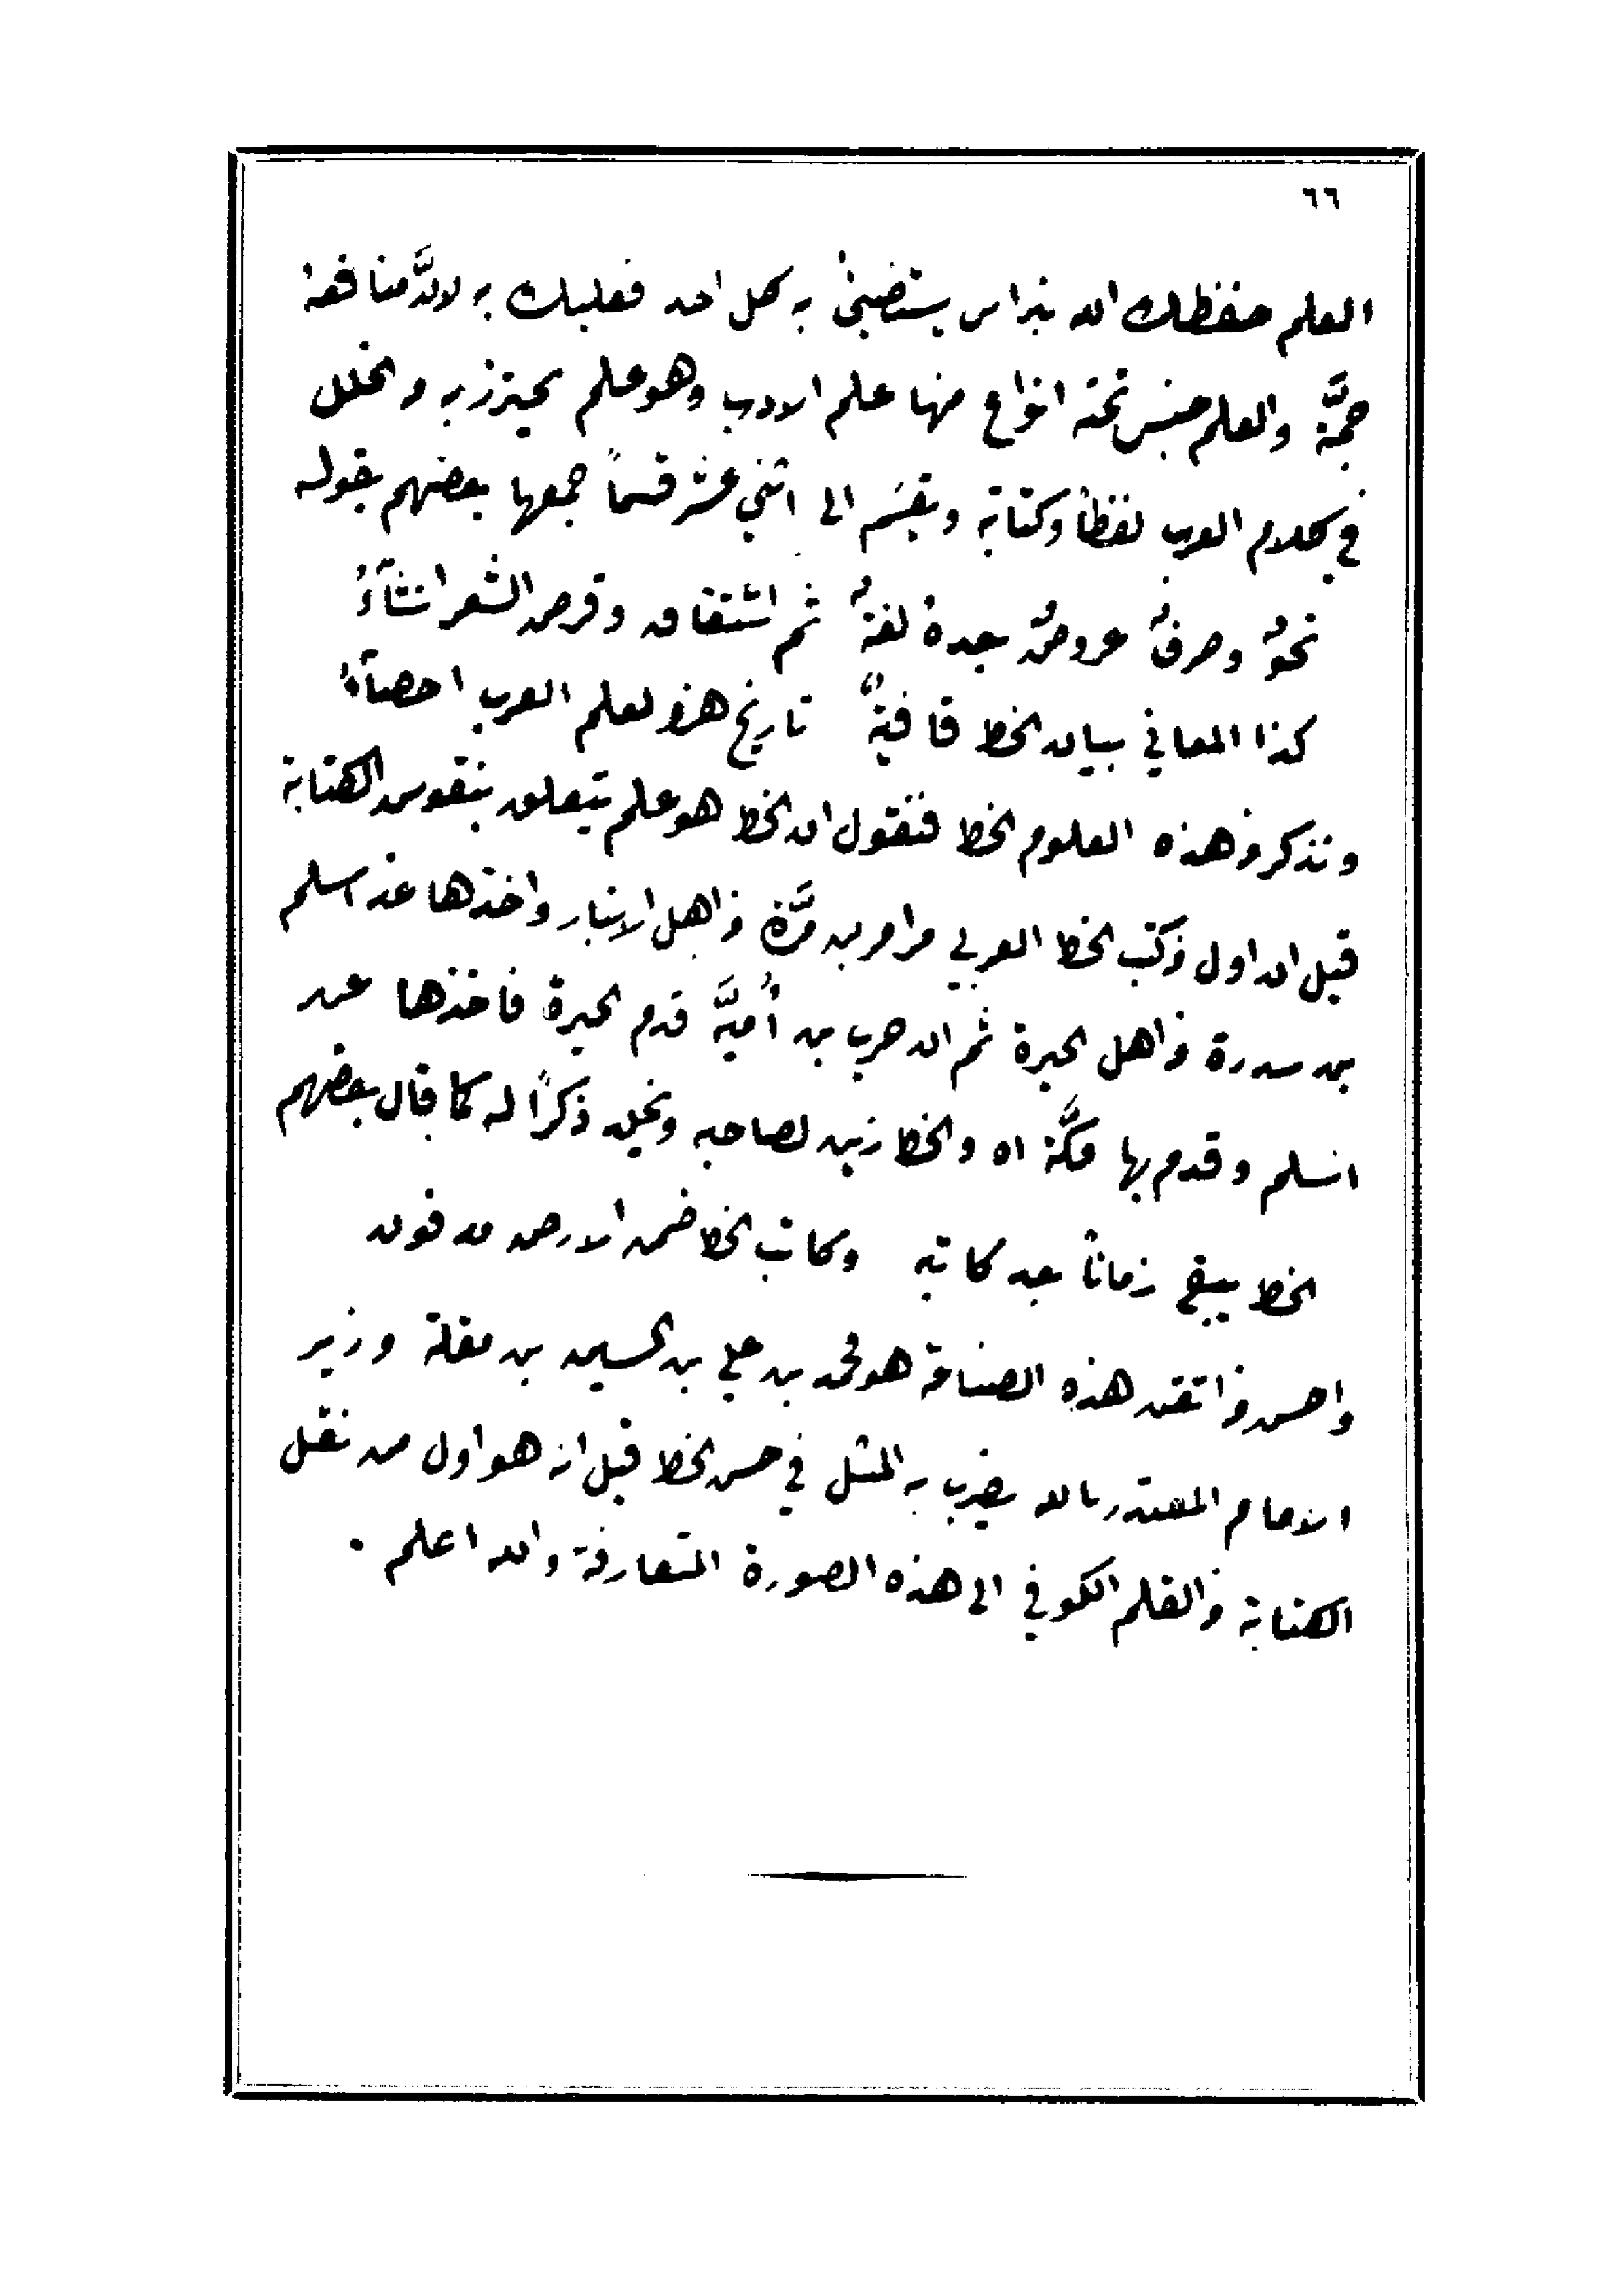 ٦٦
العلم حفظك الله نبراس يستضيئ به كل احد فعليك به لانَّ منافعهُ
جمَّة والعلم جنس تحته انواع منها علم الادب وهو علم يحترز به من الخلل
في كلام العرب لفظاً وكتابة وينقسَم الى اثني عشر قسماً جمعها بعضهم بقوله
نحوٌ وصرفٌ عروضٌ بعدهُ لغةٌ ثم اشتقاق وقرض الشعر انشآءُ
كذا المعاني بيان الخط قافيةٌ تاريخ هذا لعلم العرب احصآءُ
ونذكر من هذه العلوم الخط فنقول ان الخط هو علم يتعلق بنقوس الكتابة
قيل ان اول من كتب الخط العربي مرامر بن مرَّة من اهل الانبار واخذها عنه اسلم
بن سدرة من اهل الحيرة ثم ان حرب بن أُميَّة قدم الحيرة فاخذها عن
اسلم وقدم بها مكَّة اه والخط زين لصاحبه ويخلد ذكراً له كما قال بعضهم
الخط يبقى زماناً بعد كاتبه وكاتب الخط ضمن الارض مدفون
واحسن من اتقن هذه الصناعة هو محمد بن علي بن الحسين بن مقلة وزير
الامام المقتدر بالله يضرب به المثل في حسن الخط قيل انه هو اول من نقل
الكتابة من القلم الكوفي الى هذه الصورة المتعارفة والله اعلم .